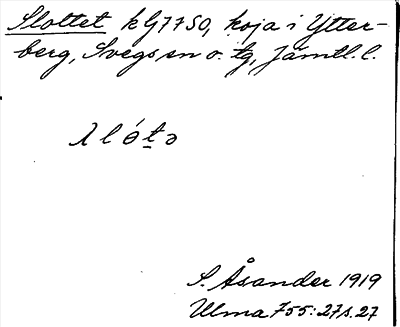 Slottet k G7750, koja i Ytter-
berg, Svegs sn o. tg, Jämtl. l.
S. Åsander 1919
Ulma 755:27 s. 27